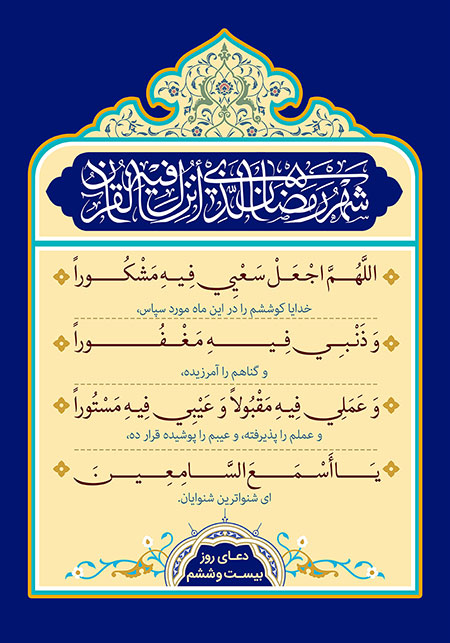 شَهرُ رَمَضانَ الَّذي أُنزِلَ فيهِ القُرآن
اللَّهُمَّ اجْعَلْ سَعْيِي فِيهِ مَشْكُوراً
خدایا کوششم را در این ماه مورد سپاس،
وَ ذَنْبِي فِيهِ مَغْفُوراً
و گناهم را آمرزیده،
وَ عَمَلِي فِيهِ مَقْبُولاً وَ عَيْبِي فِيهِ مَسْتُوراً
و عملم را پذیرفته، و عیبم را پوشیده قرار ده،
يَا أَسْمَعَ السَّامِعِينَ
ای شنواترین شنوایان.
دعای روز
بیست و ششم